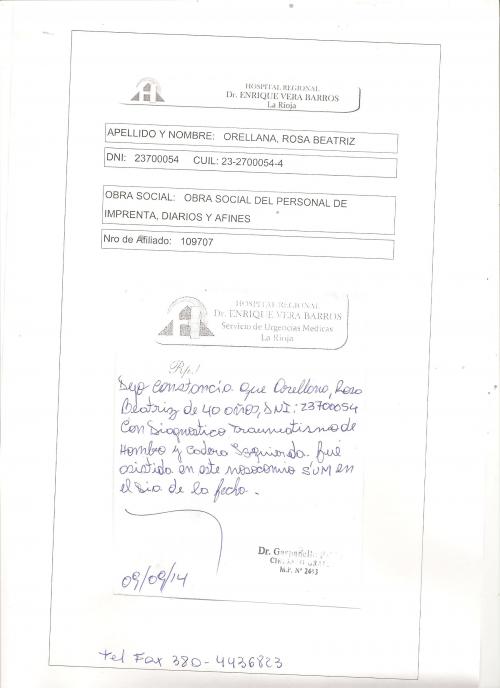 HOSPITAL REGIONAL
Dr. ENRIQUE VERA BARROS
La Rioja
APELLIDO Y NOMBRE: ORELLANA, ROSA BEATRIZ
DNI: 23700054 CUIL: 23-2700054-4
OBRA SOCIAL: OBRA SOCIAL DEL PERSONAL DE
IMPRENTA, DIARIOS Y AFINES
Nro de Afiliado: 109707
HOSPITAL REGIONAL
Dr. ENRIQUE VERA BARROS
Servicio de Urgencias Medicas
La Rioja
Rp.!
Dejo constancia que Orellana, Rosa
Beatriz de 40 años, DNI: 23700054
Con Diagnostico Traumatismo de
Hombro y Cadera Izquierda fué
asistida en este nosocomio SUM en
el Dia de la fecha.
Dr.
M.P. N° 2643
09/09/14
tel Fax 380-4436823